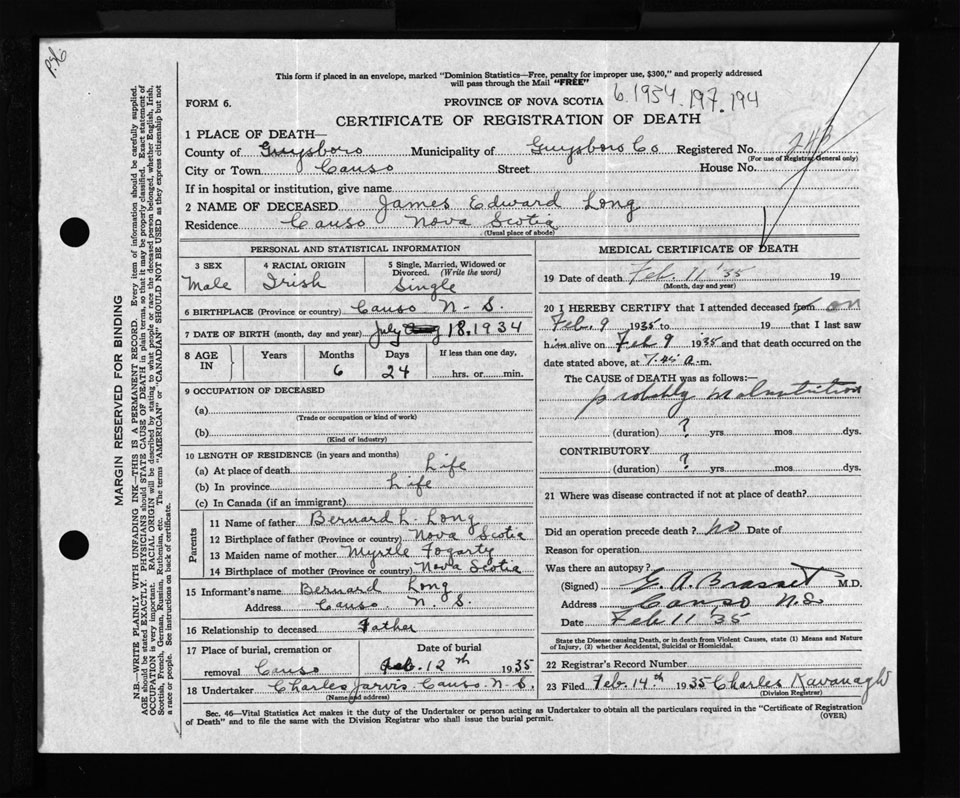 P.H.
This form if placed in an envelope, marked "Dominion Statistics—Free, penalty for improper use, $300," and properly addressed
will pass through the Mail "FREE"
FORM 6.
PROVINCE OF NOVA SCOTIA 6.1934.197.194
CERTIFICATE OF REGISTRATION OF DEATH
1 PLACE OF DEATH—
County of Guysboro Municipality of Guysboro Co Registered No.
(For use of Registrar General only)
City or Town Canso Street House No.
If in hospital or institution, give name
2 NAME OF DECEASED James Edward Long
Residence Canso Nova Scotia
(Usual place of abode)
PERSONAL AND STATISTICAL INFORMATION
3 SEX 4 RACIAL ORIGIN 5 Single, Married, Widowed or
Divorced. (Write the word)
Male Irish Single
6 BIRTHPLACE (Province or country) Canso N. S.
7 DATE OF BIRTH (month, day and year) July 18, 1934
8 AGE IN Years Months Days If less than one day,
6 24 hrs. or min.
9 OCCUPATION OF DECEASED
(a)
(Trade or occupation or kind of work)
(b)
(Kind of industry)
10 LENGTH OF RESIDENCE (in years and months)
(a) At place of death Life
(b) In province Life
(c) In Canada (if an immigrant)
Parents
11 Name of father Bernard L Long
12 Birthplace of father (Province or country) Nova Scotia
13 Maiden name of mother Myrtle Fogarty
14 Birthplace of mother (Province or country) Nova Scotia
15 Informant's name Bernard Long
Address Canso. N. S.
16 Relationship to deceased Father
17 Place of burial, cremation or Date of burial
removal Canso Feb. 12th 1935
18 Undertaker Charles Jarvis Canso. N. S.
(Name and address)
MEDICAL CERTIFICATE OF DEATH
19 Date of death Feb. 11 '35 19
(Month, day and year)
20 I HEREBY CERTIFY that I attended deceased from on
Feb. 9 1935 to 19 that I last saw
him alive on Feb 9 1935 and that death occurred on the
date stated above, at 7.45 a.m.
The CAUSE OF DEATH was as follows:
probably Malnutrition
(duration) ? yrs. mos. dys.
CONTRIBUTORY
(duration) ? yrs. mos. dys.
21 Where was disease contracted if not at place of death?
Did an operation precede death? no Date of
Reason for operation
Was there an autopsy?
(Signed) G. A. Brasset M.D.
Address Canso N.S.
Date Feb. 11 '35
State the Disease causing Death, or in death from Violent Causes, state (1) Means and Nature
of Injury, (2) whether Accidental, Suicidal or Homicidal.
22 Registrar's Record Number
23 Filed Feb. 14th 1935 Charles Kavanagh
(Division Registrar)
Sec. 46—Vital Statistics Act makes it the duty of the Undertaker or person acting as Undertaker to obtain all the particulars required in the "Certificate of Registration
of Death" and to file the same with the Division Registrar who shall issue the burial permit.
(OVER)
MARGIN RESERVED FOR BINDING
N.B.—WRITE PLAINLY WITH UNFADING INK—THIS IS A PERMANENT RECORD. Every item of information should be carefully supplied.
AGE should be stated EXACTLY. PHYSICIANS should STATE CAUSE OF DEATH in plain terms, so that it may be properly classified. Exact statement of
OCCUPATION is very important. RACIAL ORIGIN will be described by stating to what people or race the deceased person belonged, whether English, Irish,
Scottish, French, German, Russian, Ruthenian, etc. The terms "AMERICAN" or "CANADIAN" SHOULD NOT BE USED as they express citizenship but not
a race or people. See instructions on back of certificate.